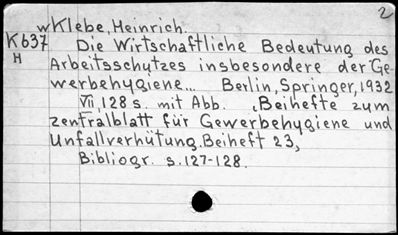 2
wKlebe, Heinrich.
K637
H
Die Wirtschaftliche Bedeutung des
Arbeitsschutzes insbesondere der Ge-
werbehygiene... Berlin, Springer, 1932
VII, 128 s. mit Abb. „Beihefte zum
zentralblatt für Gewerbehygiene und
Unfallverhütung. Beiheft 23,
Bibliogr. s. 127-128.